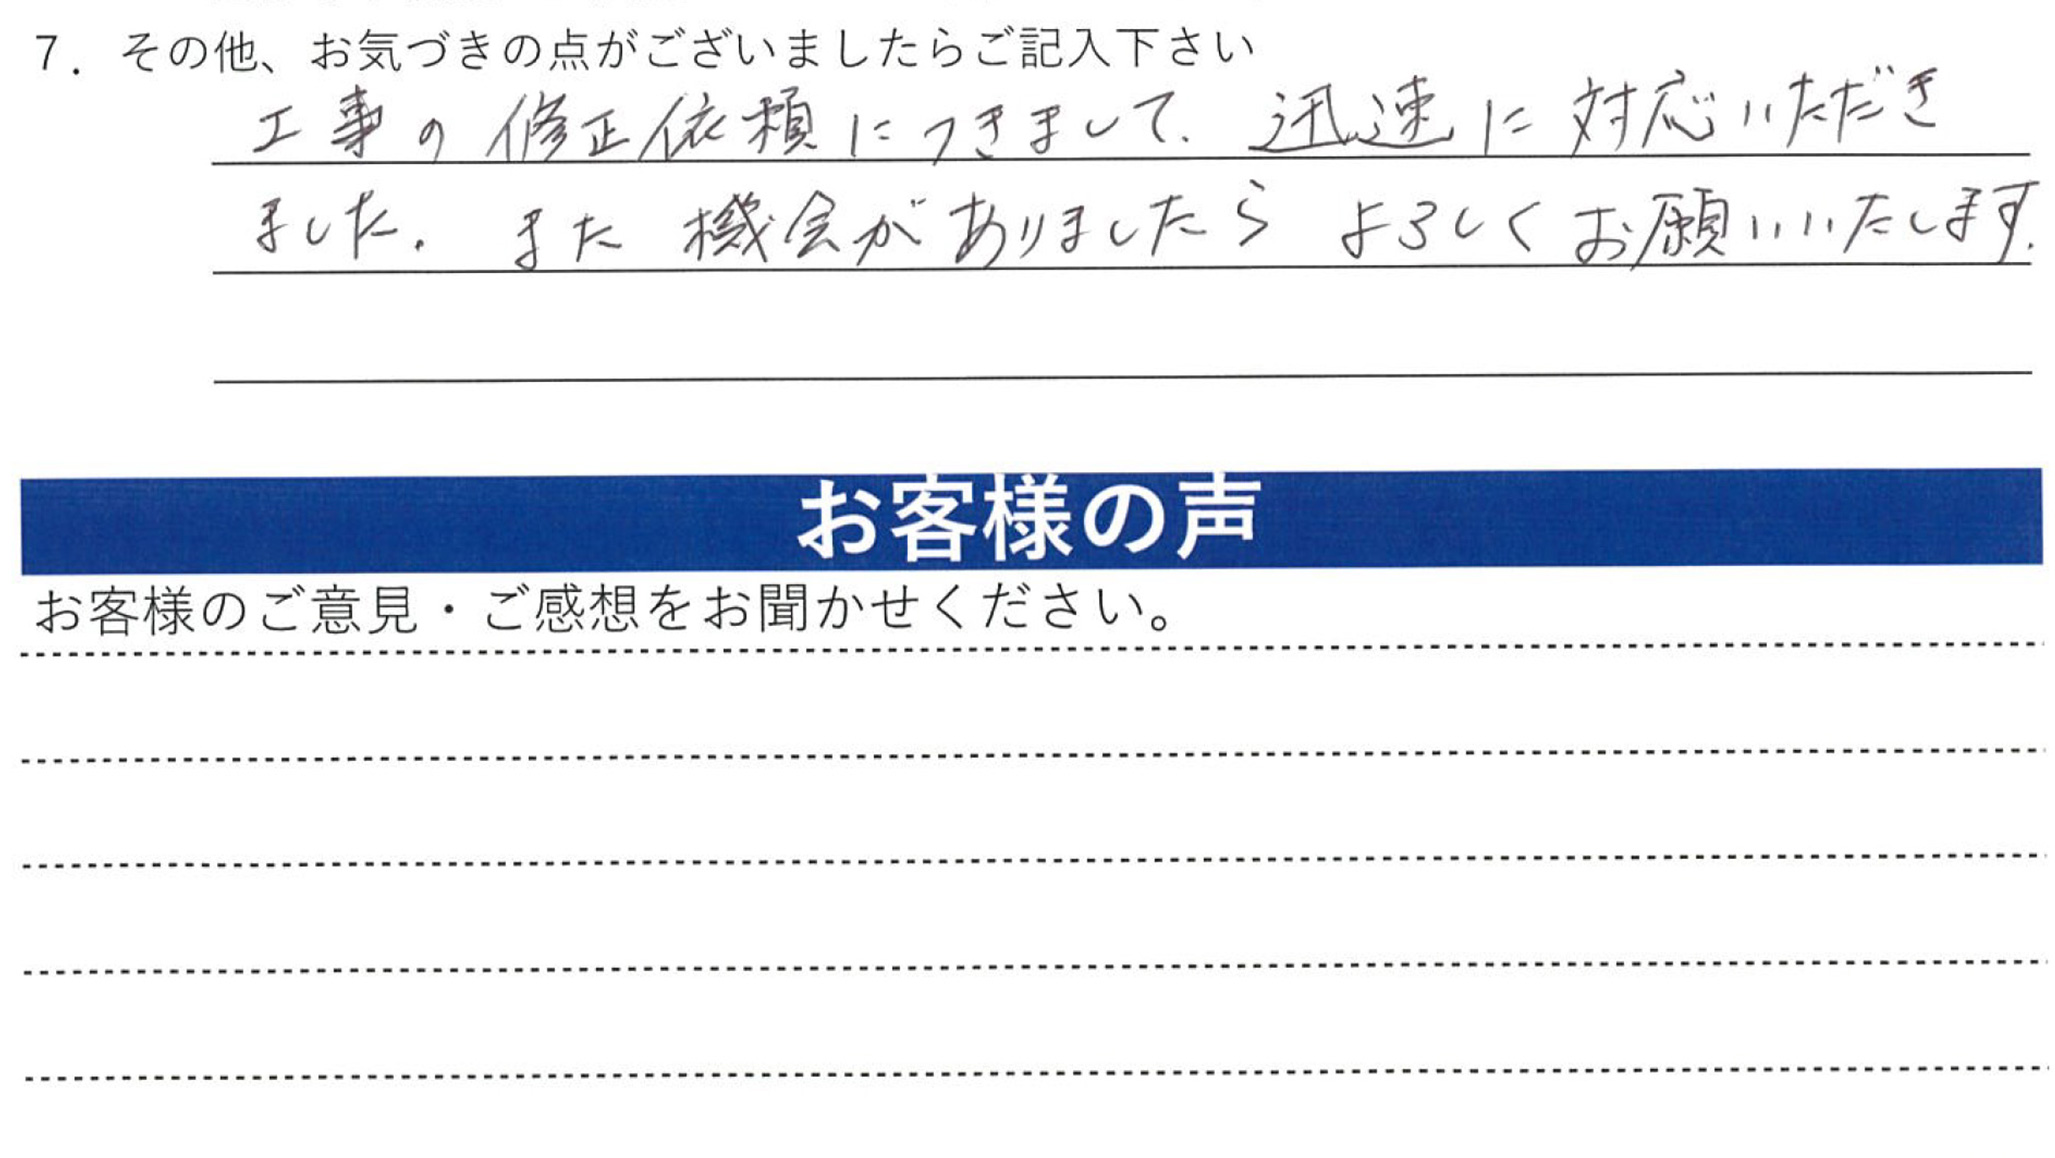 7．その他、お気づきの点がございましたらご記入下さい
工事の修正依頼につきまして、迅速に対応いただき
ました。また機会がありましたらよろしくお願いいたします。
お客様の声
お客様のご意見・ご感想をお聞かせください。